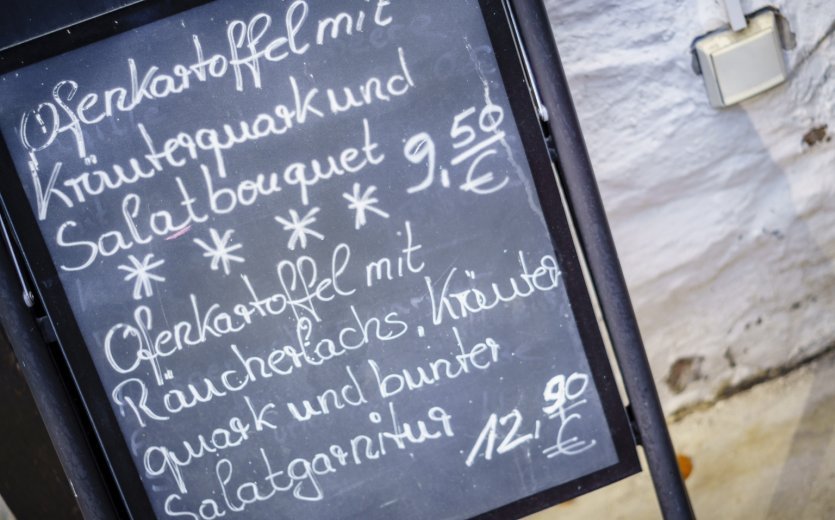 Ofenkartoffel mit
Kräuterquark und
Salatbouquet 9.50 €
* * * *
Ofenkartoffel mit
Räucherlachs, Kräuter
quark und bunter
Salatgarnitur 12,90 €